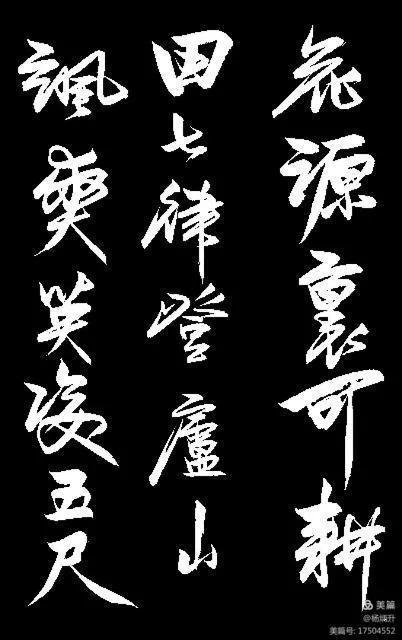 花源裏可耕
田七律登廬山
颯爽英姿五尺
美篇
美篇号: 17504552